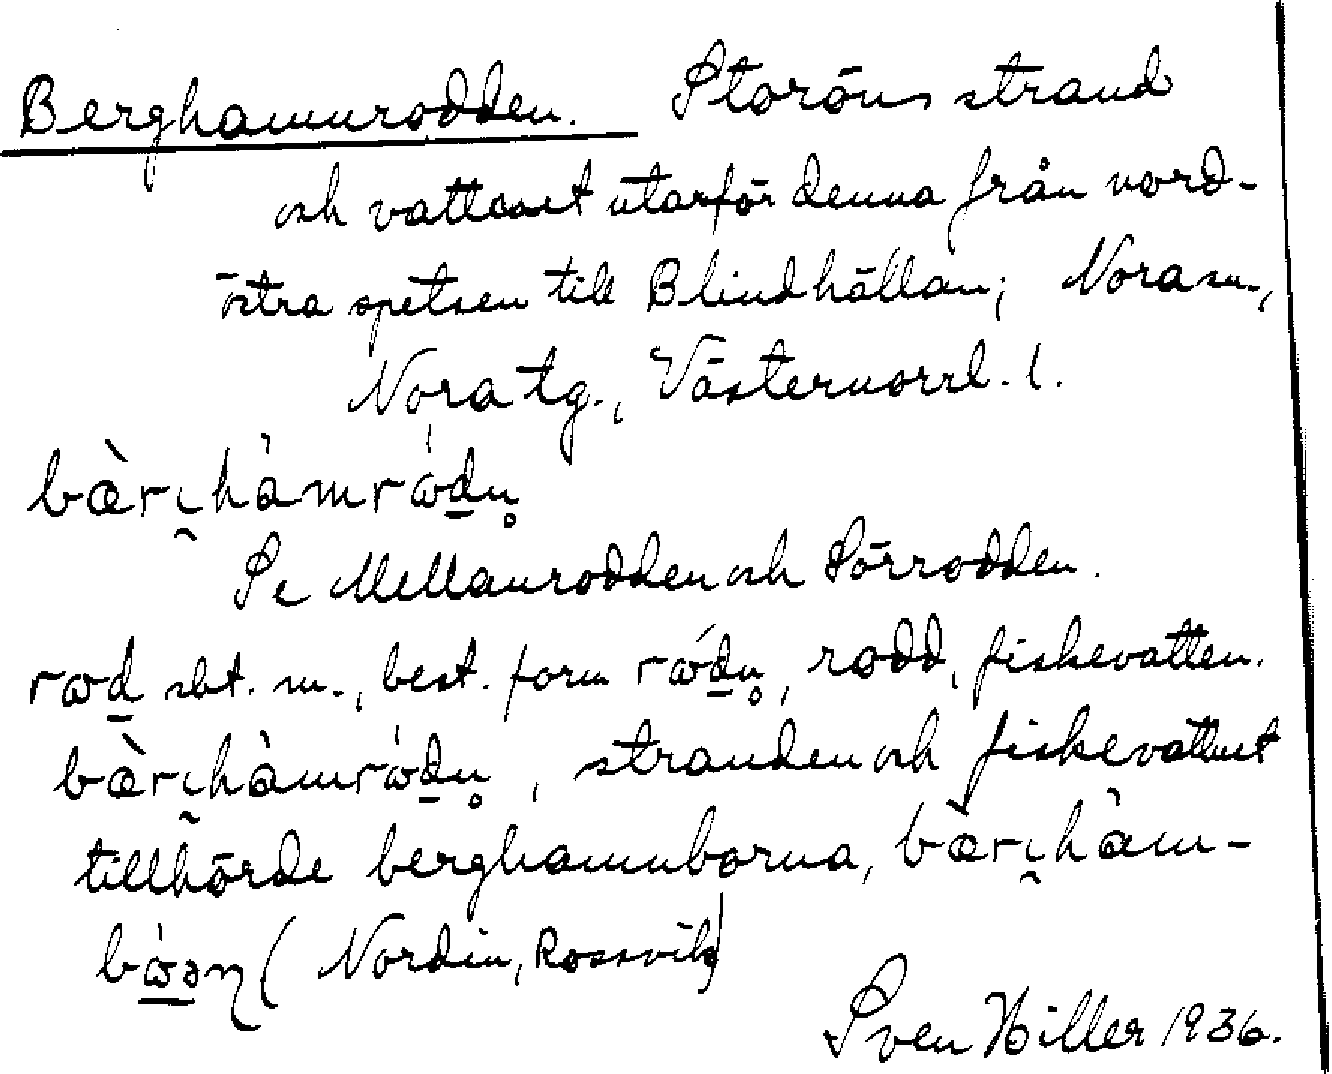 Berghamnrodden. Storöns strand
och vattnet utanför denna från nord-
östra spetsen till Blindhällan; Nora sn.,
Nora tg., Västernorrl. l.
bæ̀rı̯hàmrό̀ḏn̥
Se Mellanrodden och Sörrodden.
rωḏ sbt. m., best. form rώḏn̥, rodd, fiskevatten.
bæ̀rı̯hàmrώḏn̥, stranden och fiskevattnet
tillhörde berghamnborna, bæ̀rı̯hàm-
bώ̱əɳ (Nordin, Rossvik)
Sven Hiller 1936.